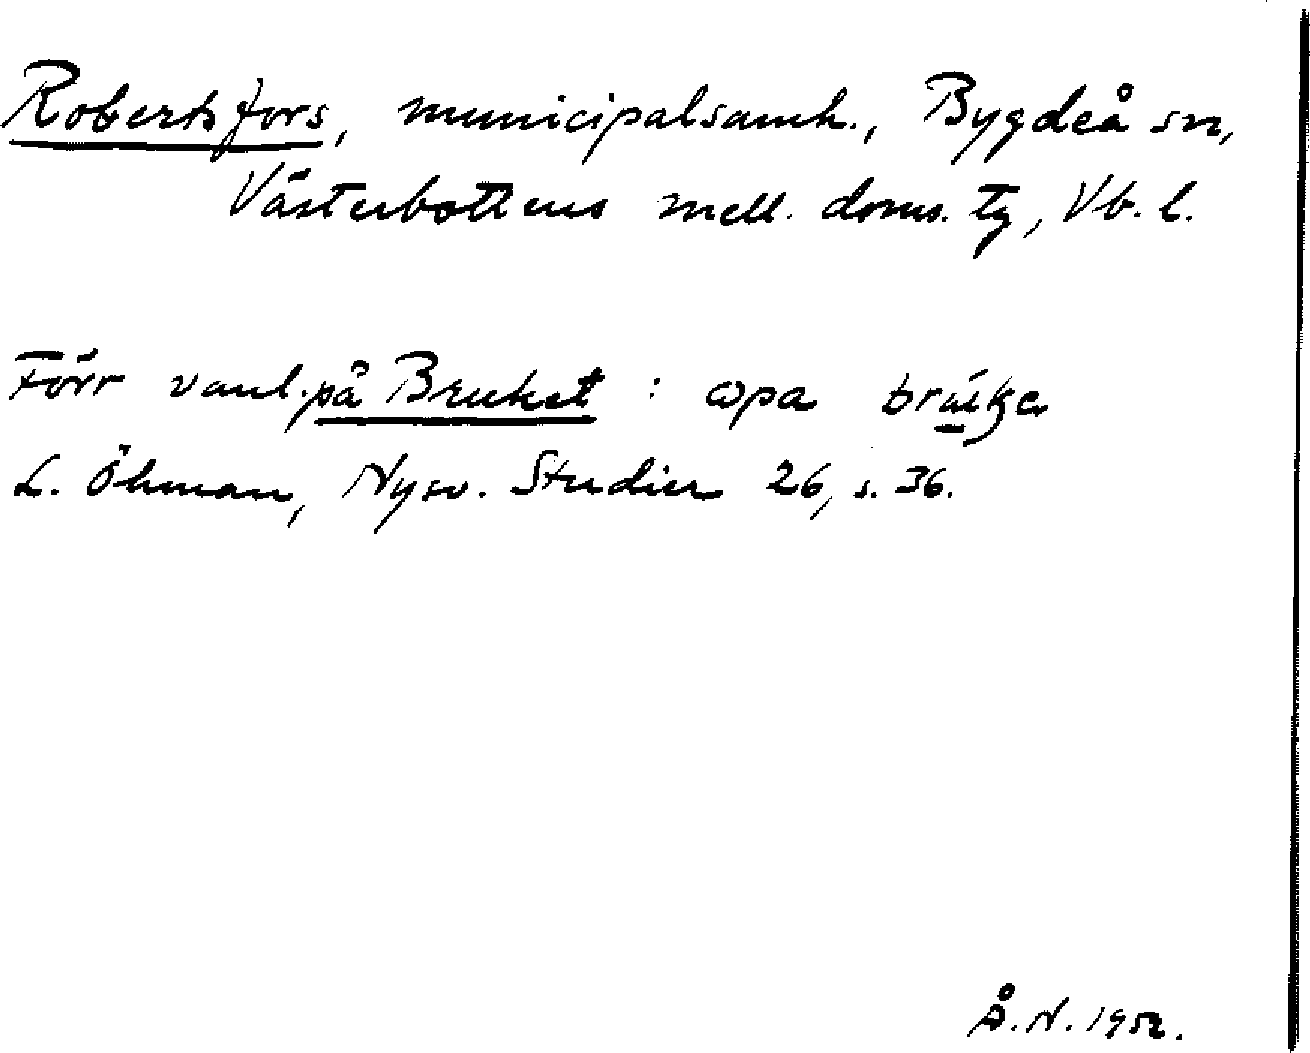 Robertsfors, municipalsamh., Bygdeå sn,
Västerbottens mell. doms. tg, Vb. l.
Förr vanl. på Bruket : ωpa
L. Öhman, Nysv. Studier 26, s. 36.
Å.N. 1952.